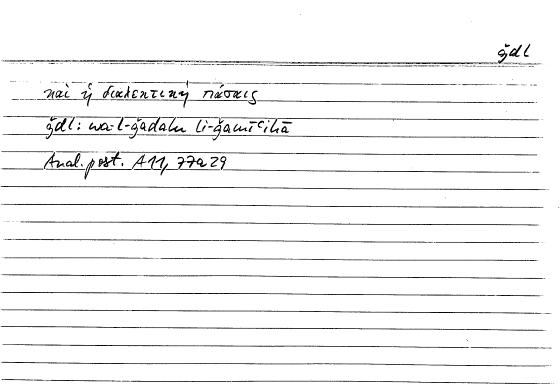 ǧdl
καὶ ἡ διαλεκτικὴ πάσαις
ǧdl: wa-l-ǧadalu li-ǧamīʿihā
Anal. post. A 11, 77a29